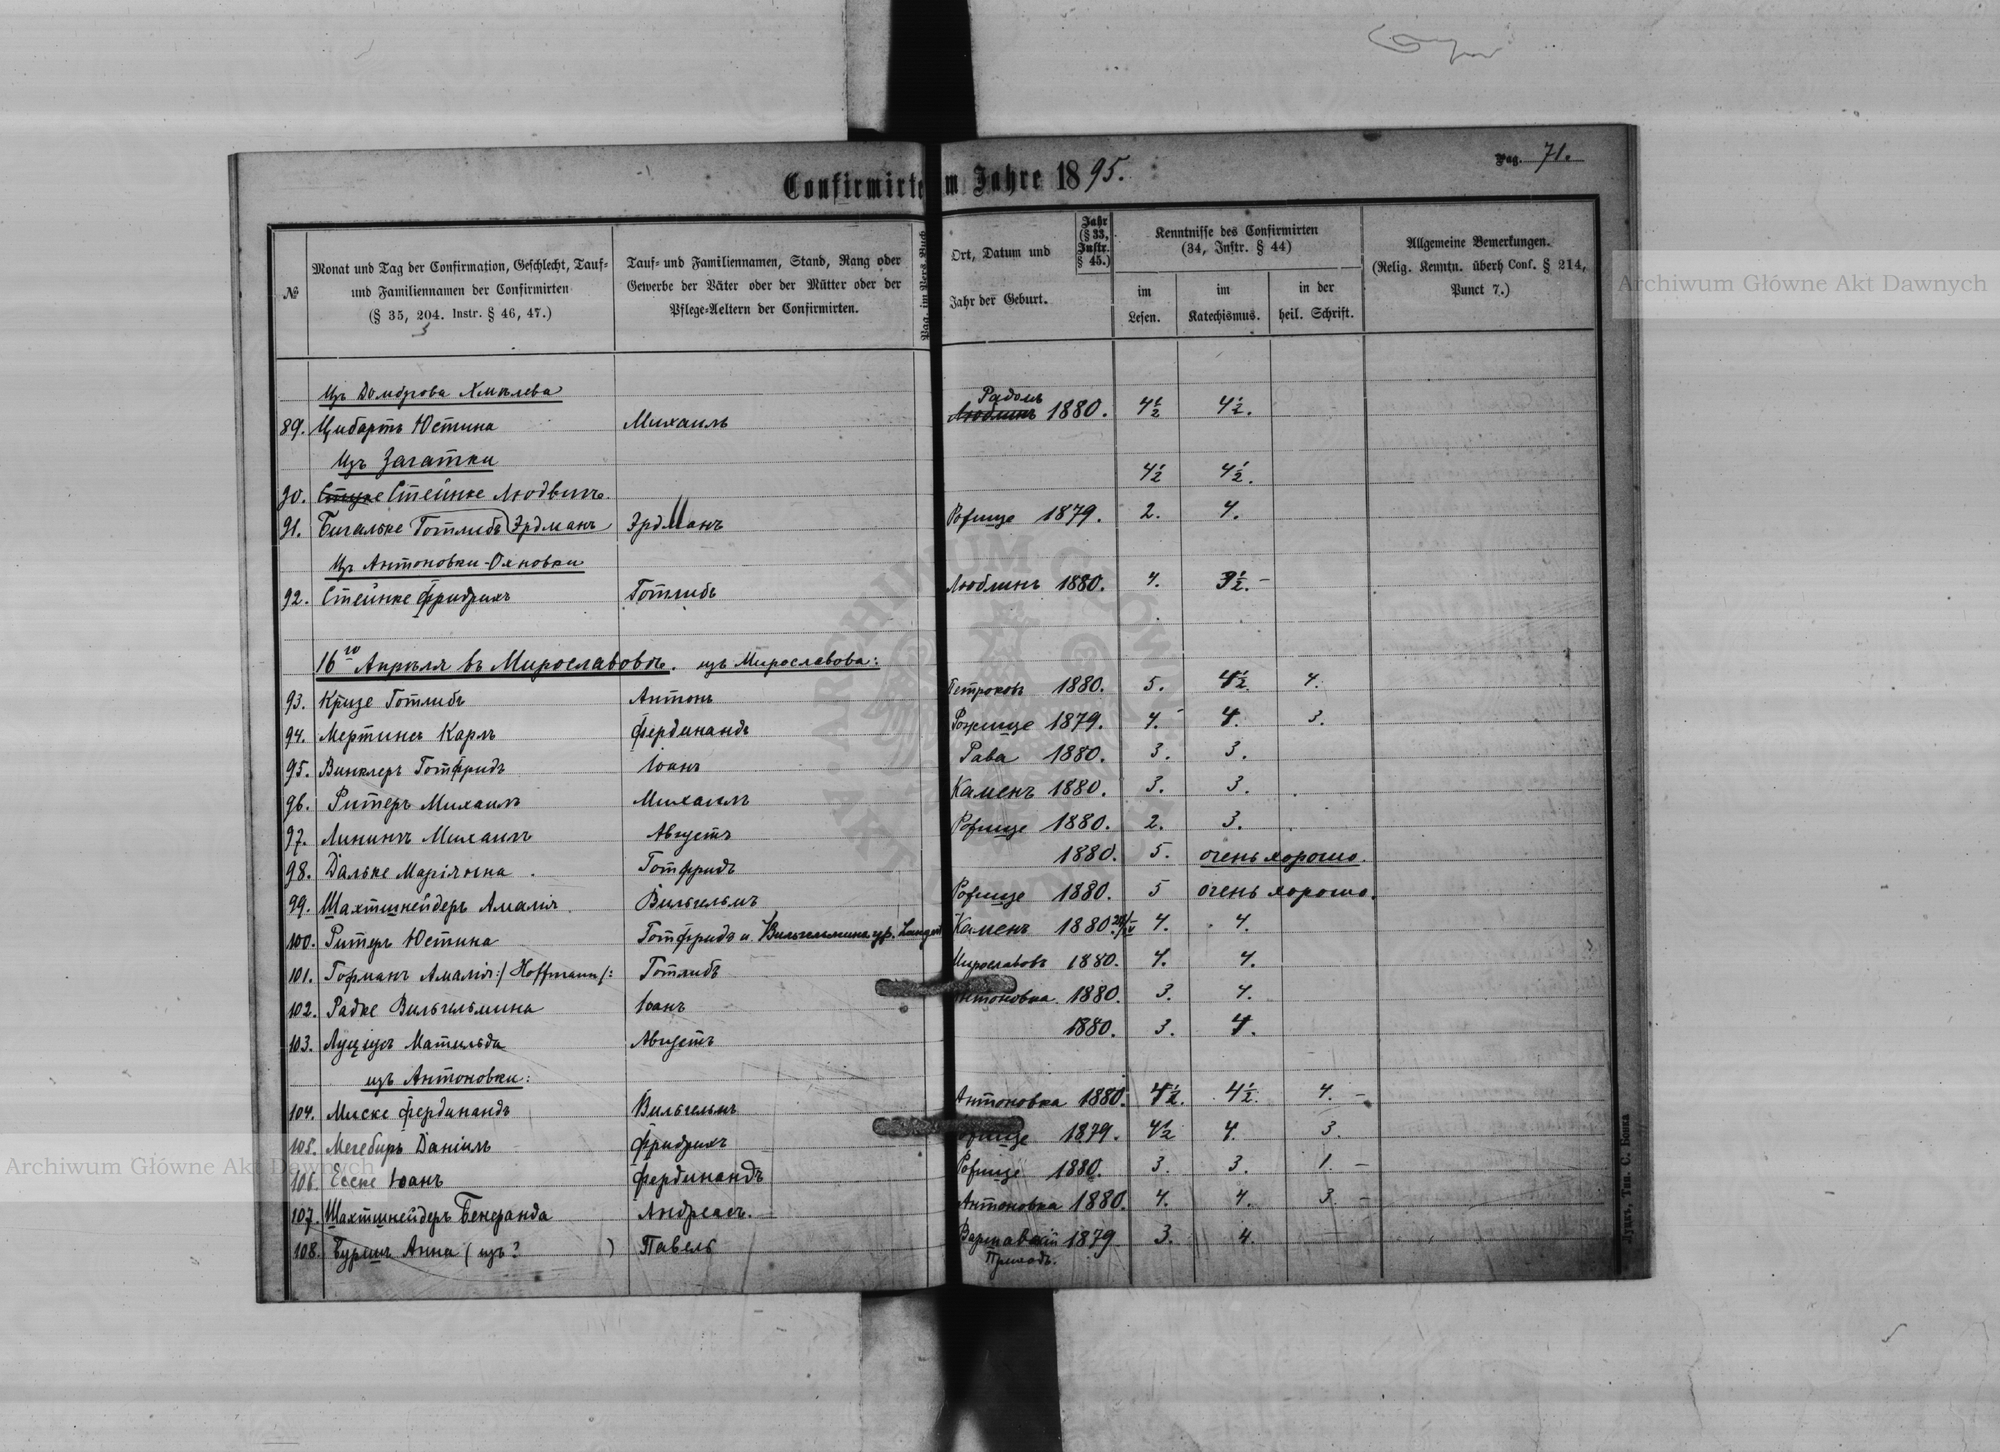 Pag. 71.
Confirmirte im Jahre 1895.
№
Monat und Tag der Confirmation, Geschlecht, Tauf-
und Familiennamen der Confirmirten
(§ 35, 204. Instr. § 46, 47.)
Tauf- und Familiennamen, Stand, Rang oder
Gewerbe der Väter oder der Mütter oder der
Pflege-Aeltern der Confirmirten.
Pag. im Pers. Buch
Ort, Datum und
Jahr der Geburt.
Jahr
(§ 33,
Instr.
§ 45.)
Kenntnisse des Confirmirten
(34, Instr. § 44)
im
Lesen.
im
Katechismus.
in der
heil. Schrift.
Allgemeine Bemerkungen.
(Relig. Kenntn. überh Conf. § 214,
Punct 7.)
Изъ Домброва Хмѣлева
89. Цибартъ Юстина Михаилъ Люблинъ Радомъ 1880. 4½ 4½.
Изъ Загатки
90. Стуке Стейнке Людвигъ. 4½ 4½.
91. Бигальке Готлибъ Эрдманъ Эрдманъ Рожище 1879. 2. 4.
Изъ Антоновки-Ояновки
92. Стейнке Фридрихъ Готлибъ Люблинъ 1880. 4. 3½ –
16го Апрѣля въ Мирославовѣ. изъ Мирославова:
93. Кризе Готлибъ Антонъ Петроковъ 1880. 5. 4½ 4.
94. Мертинсъ Карлъ Фердинандъ Рожище 1879. 4. 4. 3.
95. Винклеръ Готфридъ Іоанъ Рава 1880. 3. 3.
96. Ритеръ Михаилъ Михаилъ Каменъ 1880. 3. 3.
97. Линингъ Михаилъ Августъ Рожище 1880. 2. 3.
98. Дальке Маріянна Готфридъ 1880. 5. очень хорошо.
99. Шахтшнейдеръ Амалія Вильгельмъ Рожище 1880. 5 очень хорошо.
100. Ритеръ Юстина Готфридъ и Вильгельмина ур. Каменъ 1880 4. 4.
101. Гофманъ Амалія :/Hoffmann/: Готлибъ Мирославовъ 1880. 4. 4.
102. Радке Вильгельмина Іоанъ Антоновка 1880. 3. 4.
103. Луціусъ Матильда Августъ 1880. 3. 4.
изъ Антоновки:
104. Миске Фердинандъ Вильгельмъ Антоновка 1880. 4½. 4½. 4. –
105. Мегебиръ Даніилъ Фридрихъ Рожище 1879. 4½ 4. 3.
106. Еске Іоанъ Фердинандъ Рожище 1880. 3. 3. 1. –
107. Шахтшнейдеръ Бенгранда Андреасъ. Антоновка 1880. 4. 4. 3. –
108. Буршъ Анна (изъ? ) Павелъ Варшавскій 1879 3. 4.
Приходъ.
Луцкъ, Тип. С. Бокка
Archiwum Główne Akt Dawnych
Archiwum Główne Akt Dawnych
ARCHIWUM GŁÓWNE AKT DAWNYCH